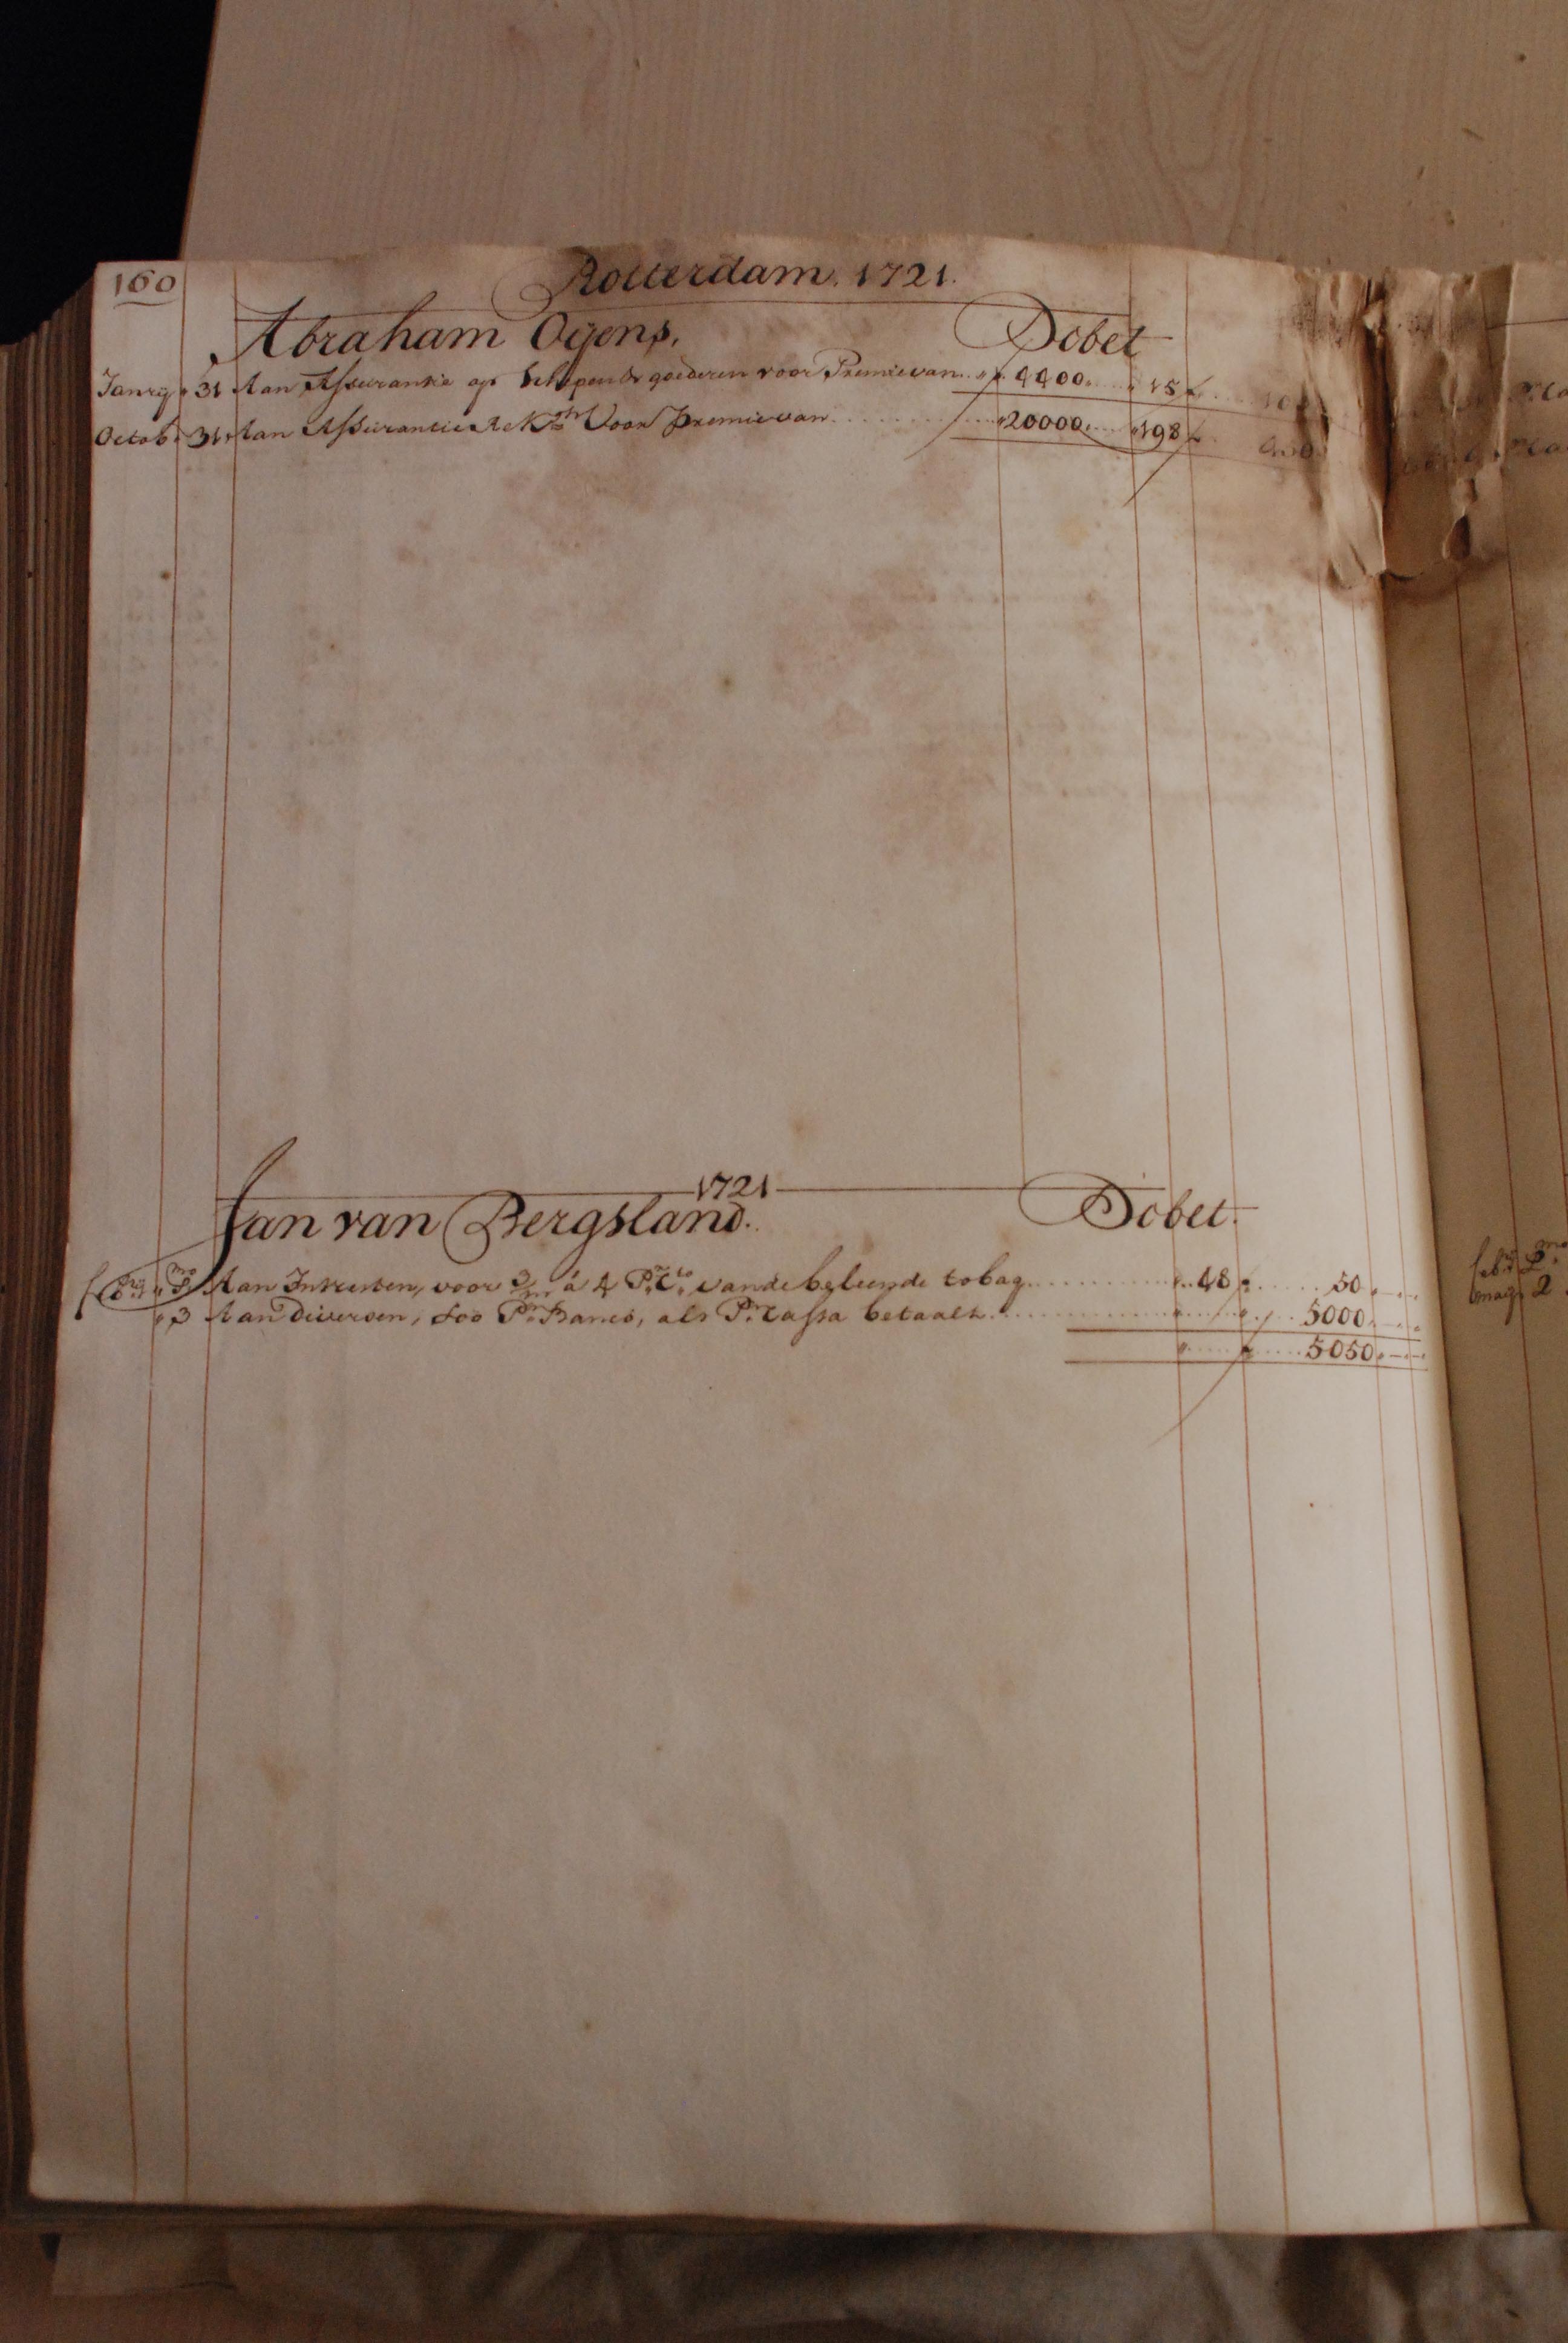 160
Rotterdam. 1721.
Abraham Oyens, Debet
Janrij 31 Aan Assurantie op Schepen & goederen voor Premie van 4400 15
Octob. 31 Aan Assurantie Rek. Voor Premie van 20000 198
1721
Jan van Bergsland. Debet.
Febrij. pmo Aan Intresten, voor 3/m á 4 P.r C.to vande beleende tobag 48 50
3 Aan Diversen, soo P.r Banco, als P.r Cassa betaalt 5000
5050